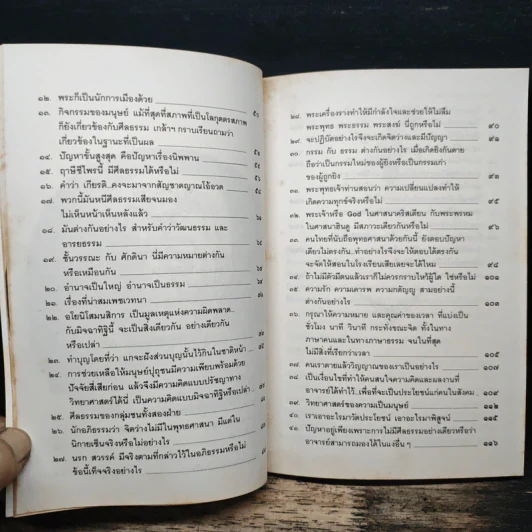 ๑๒. พระก็เป็นนักการเมืองด้วย
๑๓. กิจกรรมของมนุษย์ แม้ที่สุดที่สภาพที่เป็นโลกุตตรสภาพ ๕๐
ก็ยังเกี่ยวข้องกับศีลธรรม เกล้าฯ กราบเรียนถามว่า
เกี่ยวข้องในฐานะที่เป็นผล
๑๔. ปัญหาขั้นสูงสุด คือปัญหาเรื่องนิพพาน
๑๕. ฤาษีชีไพรนี้ มีศีลธรรมได้หรือไม่
๑๖. คำว่า เกียรติ..คงจะมาจากสัญชาตญาณโอ้อวด
๑๗. พวกนี้มันหนีศีลธรรมเสียจนมอง
ไม่เห็นหน้าเห็นหลังแล้ว
๑๘. มันต่างกันอย่างไร สำหรับคำว่าวัฒนธรรม และ
อารยธรรม
๑๙. ชั้นวรรณะ กับ ศักดินา นี่มีความหมายต่างกัน
หรือเหมือนกัน
๒๐. อำนาจเป็นใหญ่ อำนาจเป็นธรรม
๒๑. เรื่องที่น่าสมเพชเวทนา
๒๒. อโยนิโสมนสิการ เป็นมูลเหตุแห่งความผิดพลาด..
กับมิจฉาทิฐินี้ จะเป็นสิ่งเดียวกัน อย่างเดียวกัน
หรือเปล่า
๒๓. ทำบุญโดยที่ว่า แกจะฝังส่วนบุญนั้นไว้กินในชาติหน้า
๒๔. การช่วยเหลือให้มนุษย์ปุถุชนมีความเพียบพร้อมด้วย
ปัจจัยสี่เสียก่อน แล้วจึงมีความคิดแบบปรัชญาทาง
วิทยาศาสตร์ได้มี เป็นความคิดแบบมิจฉาทิฐิหรือเปล่า
๒๕. ศีลธรรมของกลุ่มชนทั้งสองฝ่าย
๒๖. นักอภิธรรมว่า จิตว่างไม่มีในพุทธศาสนา มีแต่ใน
นิกายเซ็นจริงหรือไม่อย่างไร
๒๗. นรก สวรรค์ มีจริงตามที่กล่าวไว้ในอภิธรรมหรือไม่
ข้อนี้เท็จจริงอย่างไร
๒๘. พระเครื่องรางทำให้มีกำลังใจและช่วยให้ไม่ลืม
พระพุทธ พระธรรม พระสงฆ์ นี่ถูกหรือไม่ ๙๐
๒๙. จะปฏิบัติอย่างไรจึงจะเกิดจิตว่างและมีปัญญา ๙๑
๓๐. กรรม กับ ธรรม ต่างกันอย่างไร เมื่อเกิดยิงกันตาย
ถือว่าเป็นกรรมใหม่ของผู้ยิงหรือเป็นกรรมเก่า
ของผู้ถูกยิง
๓๑. พระพุทธเจ้าท่านสอนว่า ความเปลี่ยนแปลงทำให้
เกิดความทุกข์จริงหรือไม่ ๙๕
๓๒. พระเจ้าหรือ God ในศาสนาคริสเตียน กับพระพรหม
ในศาสนาฮินดู มีสภาวะเดียวกันหรือไม่
๓๓. คนไทยที่นับถือพุทธศาสนาด้วยกันนี้ ยังตอบปัญหา
เดียวไม่ตรงกัน..ทำอย่างไรจึงจะให้ตอบได้ตรงกัน
จะจัดให้สอนในโรงเรียนเสียเลยจะได้ไหม
๓๔. ถ้าไม่มีตัวมีตนแล้วเราก็ไม่ควรกราบไหว้ผู้ใด ใช่หรือไม่ ๑๐๑
๓๕. ความรัก ความเคารพ ความกตัญญู สามอย่างนี้
ต่างกันอย่างไร ๑๐๓
กรุณาให้ความหมาย และคุณค่าของเวลา ที่แบ่งเป็น
ชั่วโมง นาที วินาที กระทั่งขณะจิต ทั้งในทาง
ภาษาคนและในทางภาษาธรรม จนในที่สุด
ไม่มีสิ่งที่เรียกว่าเวลา ๑๐๕
คนเราตายแล้ววิญญาณของเราเป็นอย่างไร ๑๐๗
เป็นเงื่อนไขที่ทำให้คนสนใจความคิดและผลงานที่
อาจารย์ได้ทำไว้..เพื่อที่จะเป็นประโยชน์แก่คนในสังคม
วิทยาศาสตร์ของความเป็นมนุษย์ ๑๑๒
เราเอาอะไรมาวัดประโยชน์ เอาอะไรมาพิสูจน์ ๑๑๕
ปัญหาอยู่เพียงเพราะการไม่มีศีลธรรมอย่างเดียวหรือว่า
อาจารย์สามารถมองได้ในแง่อื่น ๆ ๑๑๖